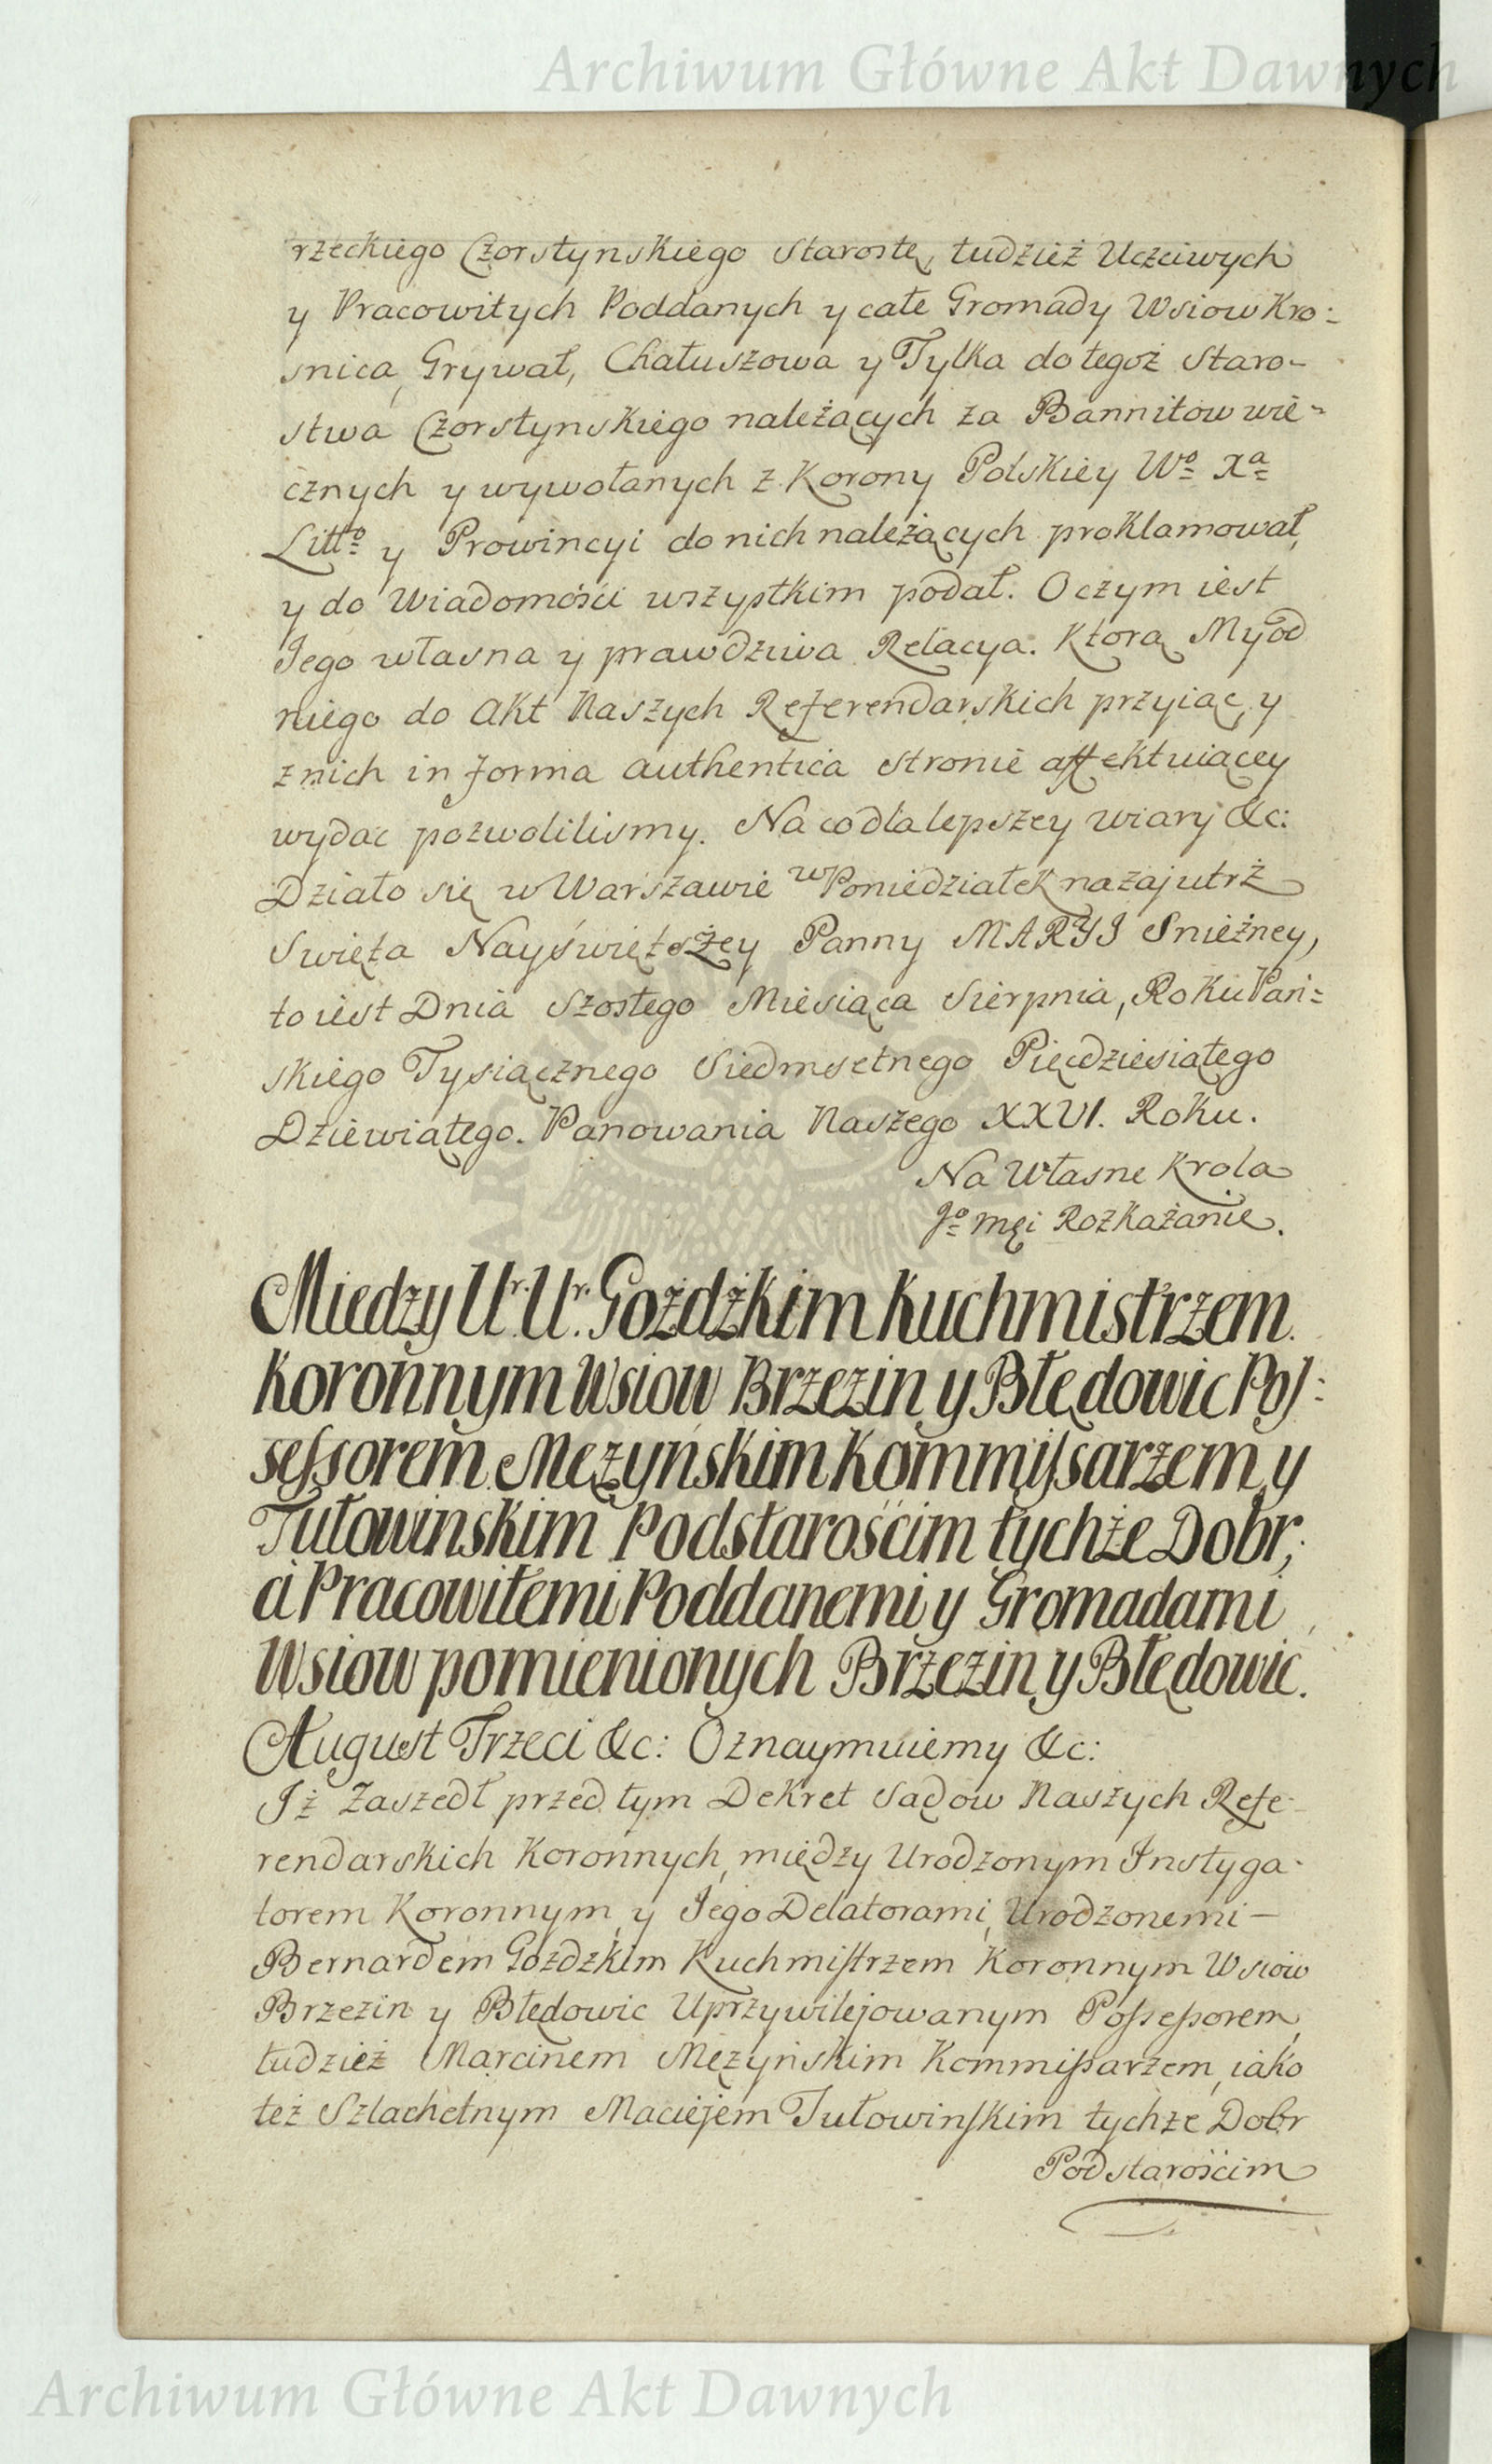 Archiwum Główne Akt Dawnych
rzeckiego Czorstynskiego Starostę, tudzież Uczciwych
y Pracowitych Poddanych y całe Gromady Wsiow Kro:
snica, Grywał, Chałuszowa y Tylka do tegoż Staro-
stwa Czorstynskiego należących za Bannitow wie-
cznych y wywołanych z Korony Polskiey Wº Xª
Littº y Prowincyi do nich należących proklamował,
y do Wiadomości wszystkim podał. O czym iest
Jego własna y prawdziwa Relacya. Ktorą My od
niego do Akt Naszych Referendarskich przyiąc, y
z nich in forma authentica stronie affektuiącey
wydac pozwolilismy. Na co dla lepszey wiary &c:
Działo się w Warszawie w Poniedziałek nazajutrż
Swięta Nayświętszey Panny MARYI Snieżney,
to iest Dnia Szostego Miesiąca Sierpnia, Roku Pań=
skiego Tysiącznego Siedmsetnego Pięcdziesiątego
Dziewiątego. Panowania Naszego XXVI. Roku.
Na Własne Krola
Jº Mći Rozkażanie.
Miedzy Ur. Ur. Gożdżkim Kuchmistrzem
Koronnym Wsiow Brzezin y Błędowic Pos:
sessorem Męzyńskim Kommissarzem y
Tułowinskim Podstarościm tychże Dobr,
a Pracowitemi Poddanemi y Gromadami
Wsiow pomienionych Brzezin y Błędowic.
August Trzeci &c: Oznaymuiemy &c:
Iż Zaszedł przed tym Dekret Sądow Naszych Refe-
rendarskich Koronnych, między Urodzonym Instyga-
torem Koronnym y Jego Delatorami, Urodzonemi -
Bernardem Gożdżkim Kuchmistrzem Koronnym Wsiow
Brzezin y Błędowic Uprzywilejowanym Possessorem,
tudzież Marcinem Męzyńskim Kommissarzem, iako
też Szlachetnym Maciejem Tułowinskim tychże Dobr
Podstarościm
Archiwum Główne Akt Dawnych